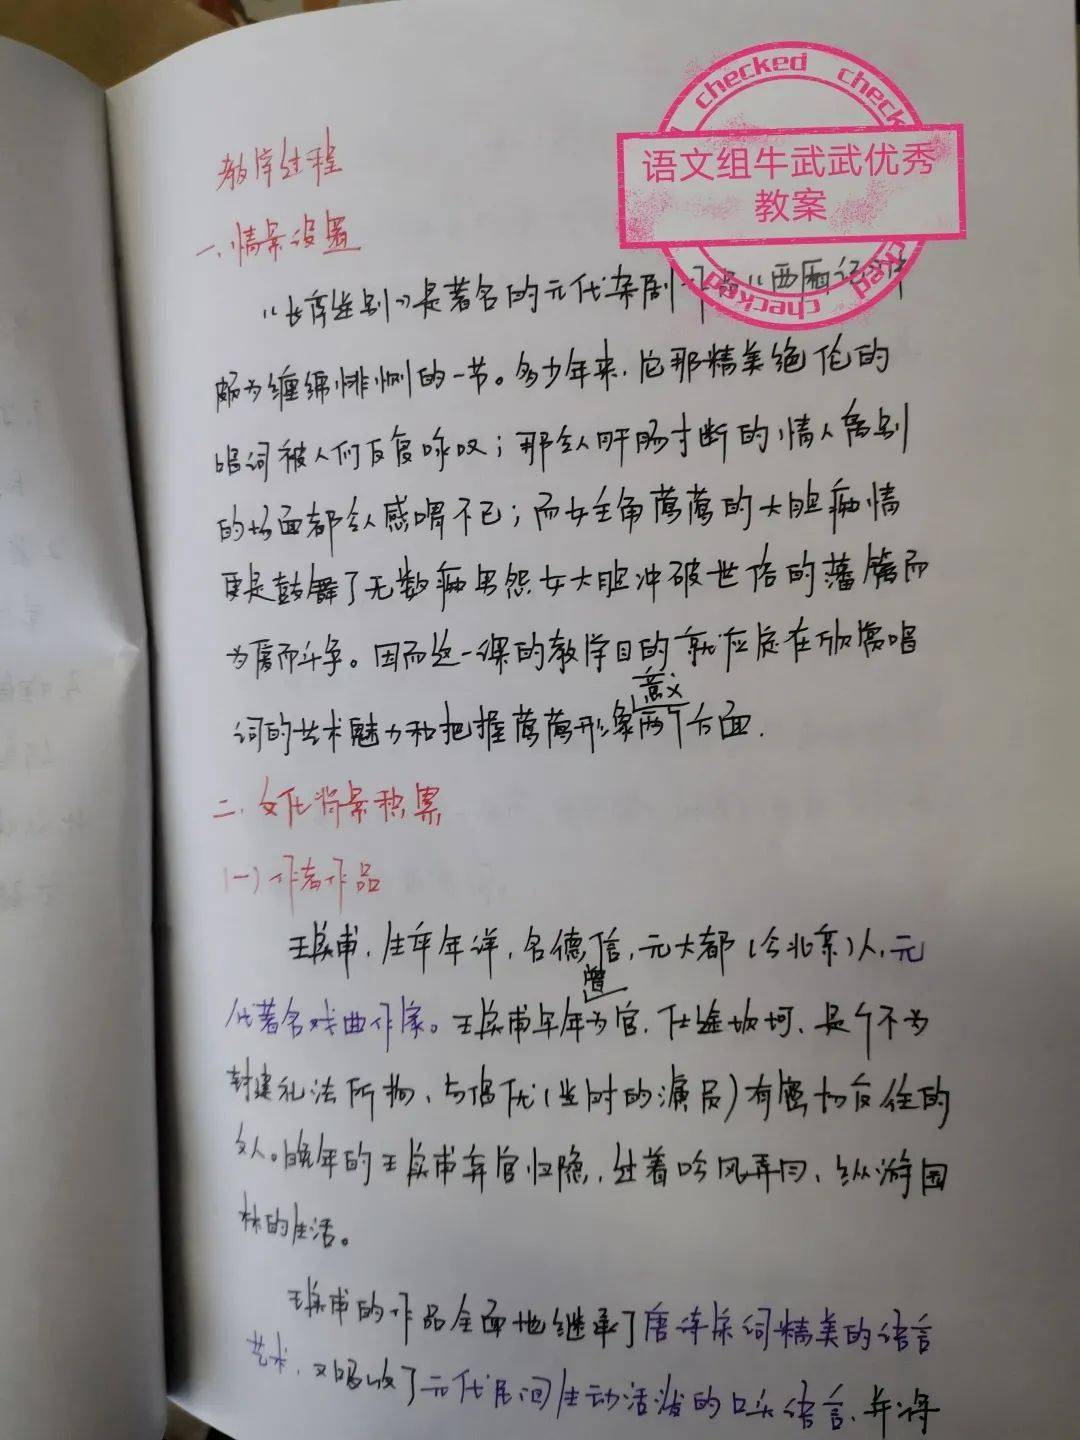 checked checked
语文组牛武武优秀
教案
checked checked
教学过程
一、情景设置
《长亭送别》是著名的元代杂剧作品《西厢记》中
颇为缠绵悱恻的一节。多少年来,它那精美绝伦的
唱词被人们反复咏叹;那令人肝肠寸断的情人离别
的场面都令人感喟不已;而女主角莺莺的大胆痴情
更是鼓舞了无数痴男怨女大胆冲破世俗的藩篱而
为爱而斗争。因而这一课的教学目的就应定在欣赏唱
词的艺术魅力和把握莺莺形象意义两个方面.
二、文化背景积累
(一)作者作品
王实甫,生卒年详,名德信,元大都(今北京)人,元
代著名戏曲作家。王实甫早年曾为官,仕途坎坷、是个不为
封建礼法所拘、与倡优(当时的演员)有密切交往的
文人。晚年的王实甫弃官归隐,过着吟风弄月、纵游园
林的生活。
王实甫的作品全面地继承了唐诗宋词精美的语言
艺术,又吸收了元代民间生动活泼的口头语言,并将